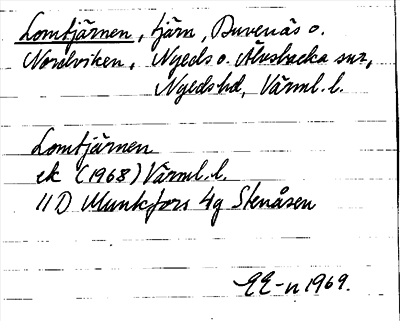 Lomtjärnen, tjärn, Duvenäs o.
Nordviken, Nyeds o. Älvsbacka snr,
Nyeds hd, Värml. l.
Lomtjärnen
ek (1968) Värml. l.
11 D Munkfors 4g Stenåsen
EE-n 1969.